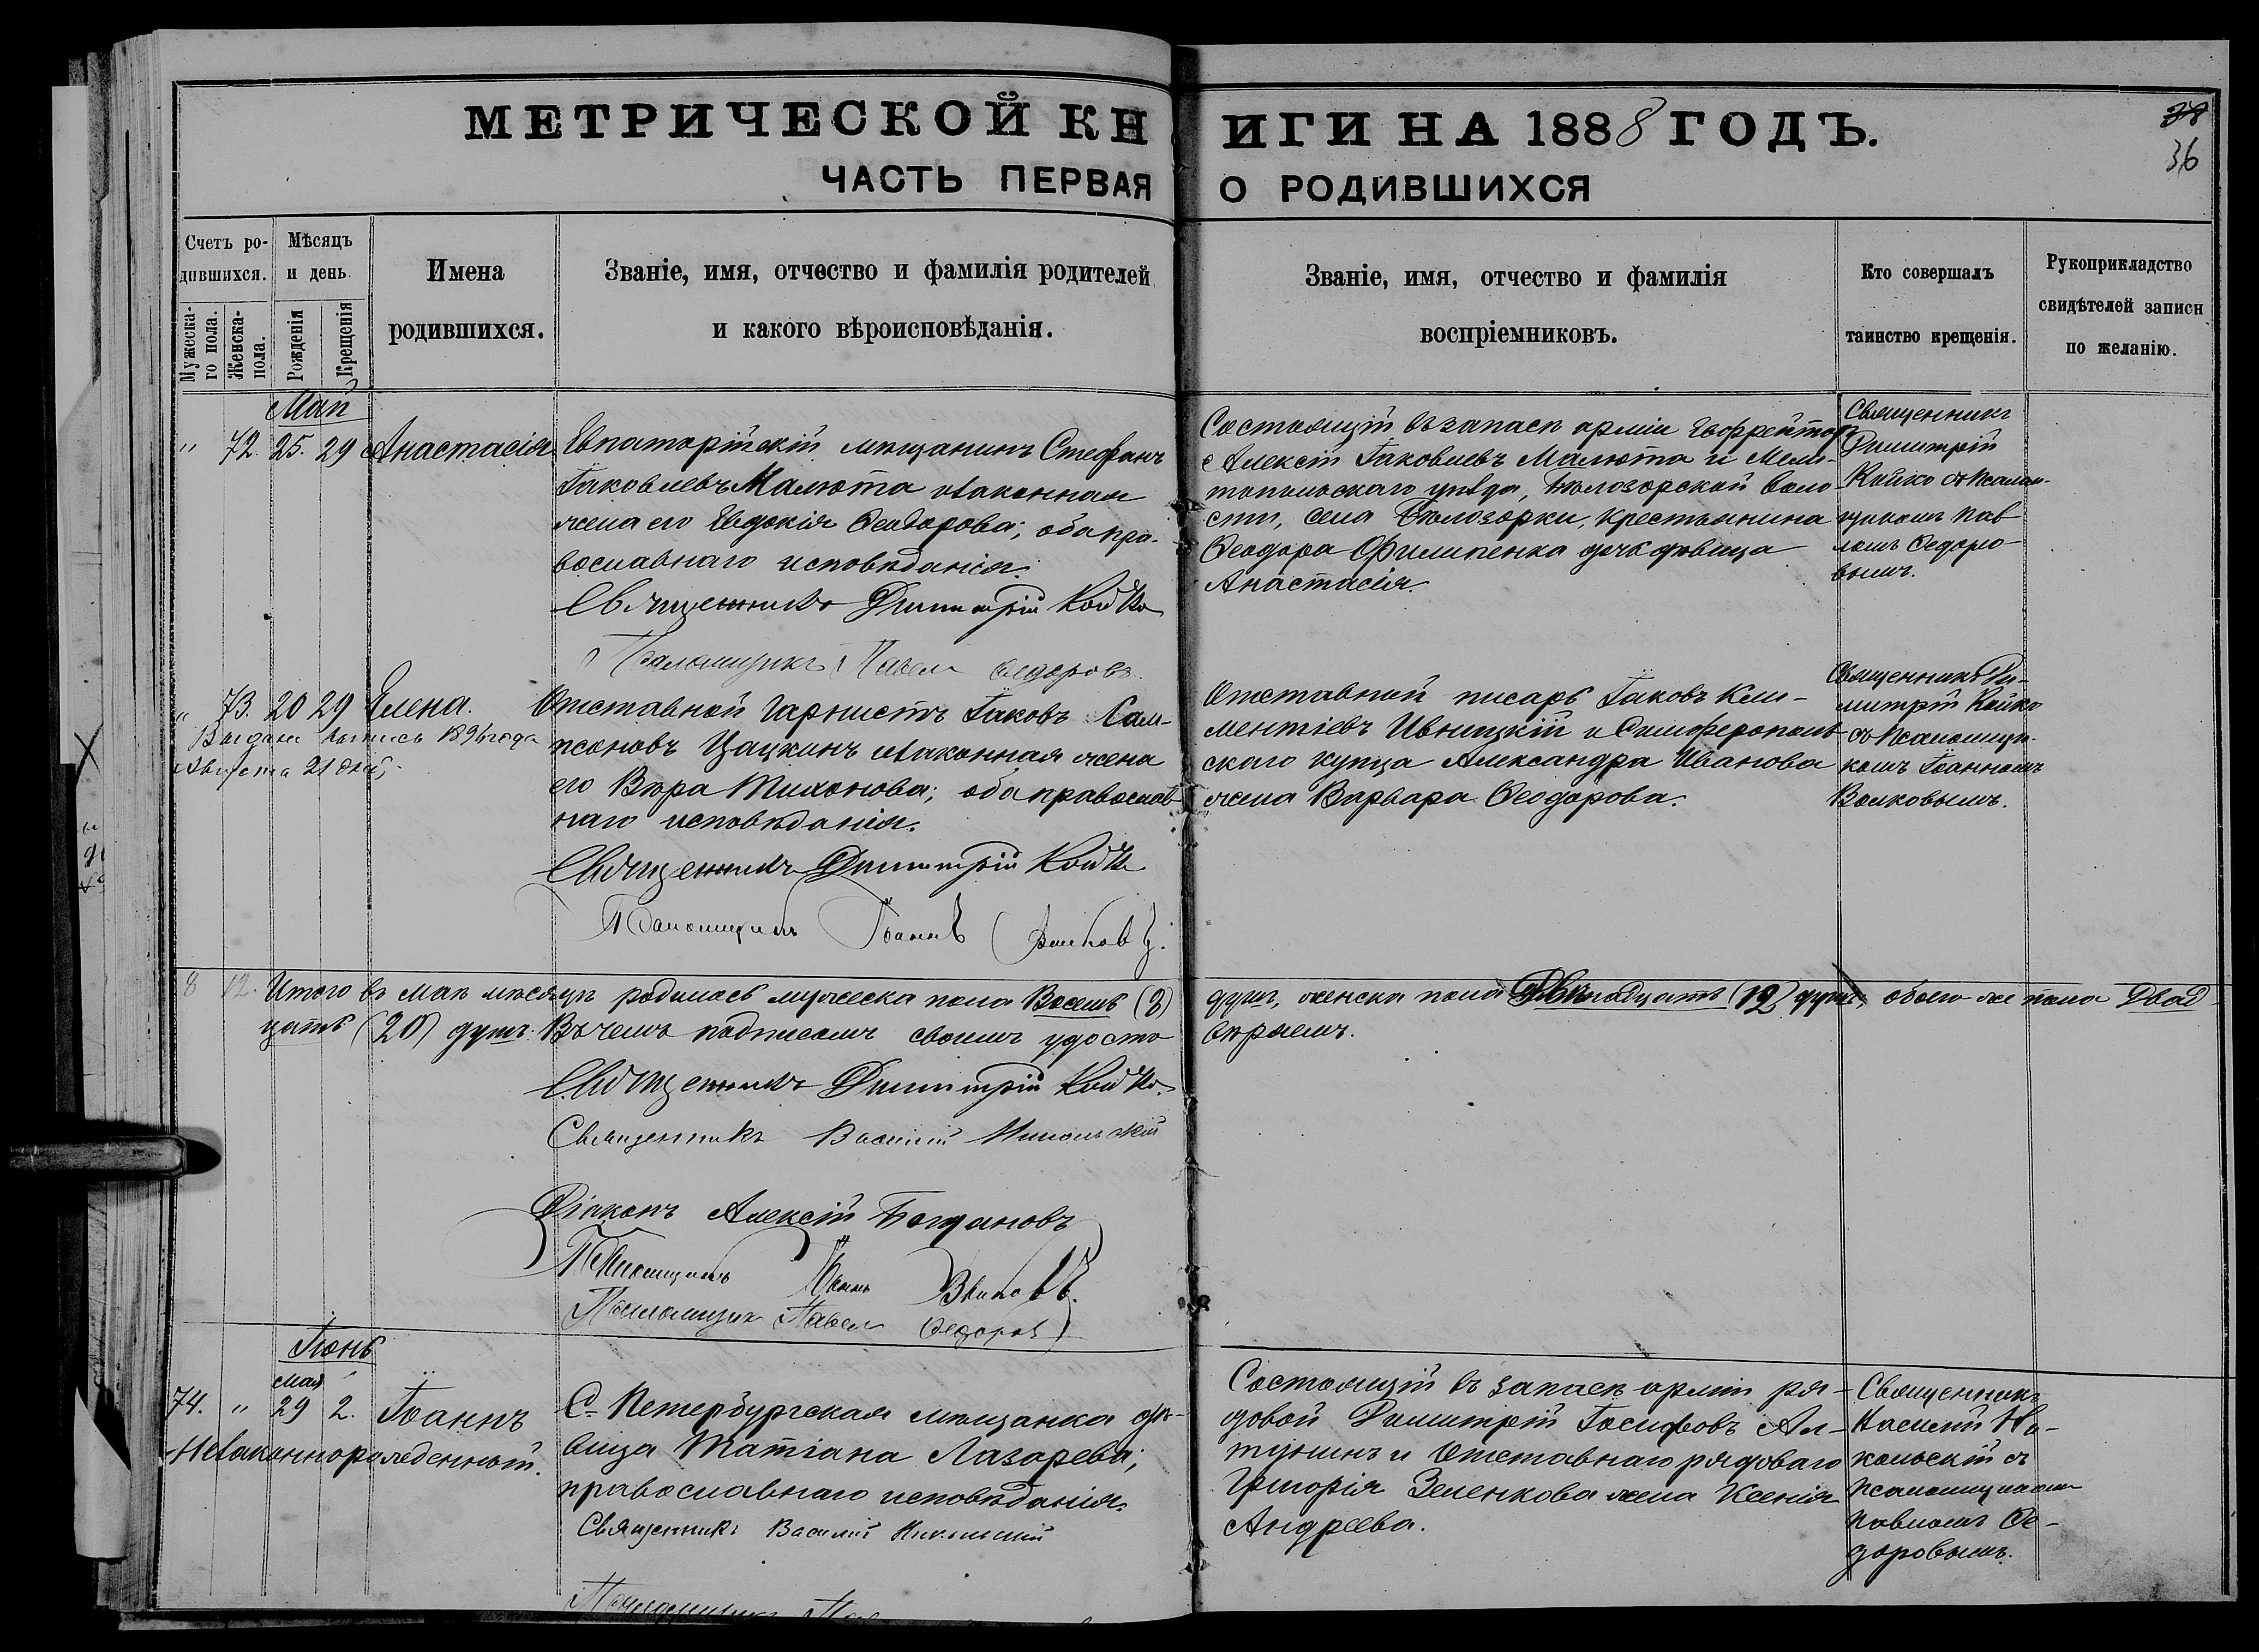 МЕТРИЧЕСКОЙ КНИГИ НА 1888 ГОДЪ.
38
36
ЧАСТЬ ПЕРВАЯ О РОДИВШИХСЯ
Счетъ ро-
дившихся.
Мужеска-
го пола.
Женска-
пола.
Мѣсяцъ
и день
Рожденія
Крещенія
Имена
родившихся.
Званіе, имя, отчество и фамилія родителей
и какого вѣроисповѣданія.
Званіе, имя, отчество и фамилія
воспріемниковъ.
Кто совершалъ
таинство крещенія.
Рукоприкладство
свидѣтелей записи
по желанію.
Май
" 72. 25. 29 Анастасія
Евпаторійскій мѣщанинъ Стефанъ
Іаковлевъ Малюта и законная
жена его Евдокія Ѳеодорова; оба пра-
вославнаго исповѣданія.
Священникъ Димитрій Койко
Псаломщикъ Павелъ Ѳедоровъ
Состоящій въ запасѣ арміи Ефрейторъ
Алексій Іаковлевъ Малюта и Мели-
топольскаго уѣзда, Бѣлозорской воло-
сти, села Бѣлозорки, крестьянина
Ѳеодора Филипенка дочь дѣвица
Анастасія.
Священникъ
Димитрій
Койко съ Псалом-
щикомъ Пав-
ломъ Ѳедоро-
вымъ.
" 73. 20 29 Елена.
Выдана выпись 1896 года
Августа 21 дня,
Отставной Горнистъ Іаковъ Сам-
псоновъ Цацкинъ и законная жена
его Вѣра Тихонова; оба православ-
наго исповѣданія.
Священникъ Димитрій Койко
Псаломщикъ Іоаннъ Волковъ.
Отставной писарь Іаковъ Кли-
ментіевъ Ивницкій и Симферополь-
скаго купца Александра Иванова
жена Варвара Ѳеодорова.
Священникъ Ди-
митрій Койко
съ Псаломщи-
комъ Іоанномъ
Волковымъ.
8 12. Итого въ маѣ мѣсяцѣ родилось мужеска пола Восемь (8) душъ, женска пола Двѣнадцать (12) душъ, обоего же пола Двад-
цать (20) душъ. Въ чемъ подписомъ своимъ удостовѣряемъ.
Священникъ Димитрій Койко.
Священникъ Василій Никольскій
Діаконъ Алексій Богдановъ
Псаломщикъ Іоаннъ Волковъ.
Псаломщикъ Павелъ Ѳедоровъ
Іюнь
мая
74. " 29 2. Іоаннъ
Незаконнорожденный.
С. Петербургская мѣщанка дѣ-
вица Татіана Лазарева;
православнаго исповѣданія.
Священникъ Василій Никольскій
Псаломщикъ
Состоящій въ запасѣ арміи ря-
довой Димитрій Іосифовъ Ал-
тунинъ и Отставнаго рядоваго
Григорія Зеленкова жена Ксенія
Андреева.
Священникъ
Василій Ни-
кольскій съ
Псаломщикомъ
Павломъ Ѳе-
доровымъ.